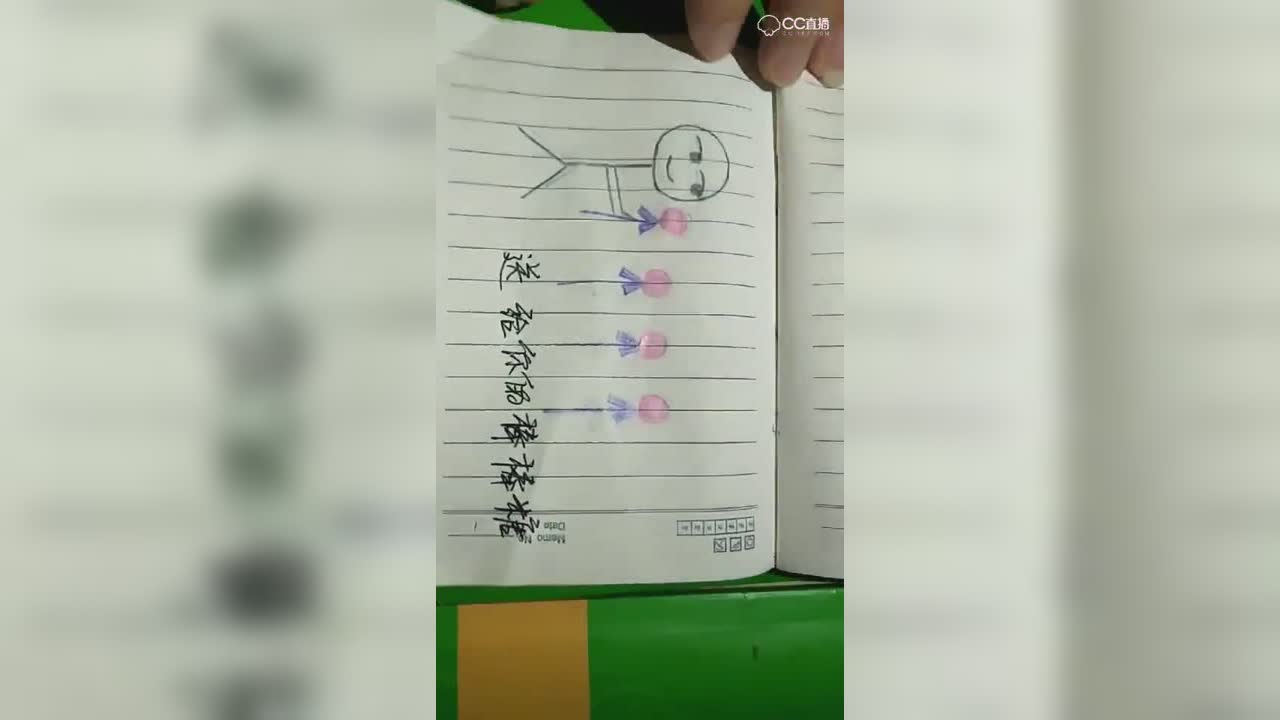 CC直播
送给你的棒棒糖
Memo No.
Date /